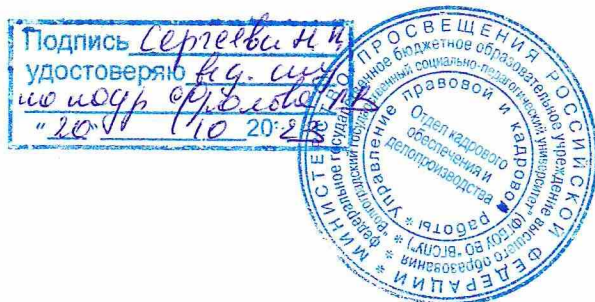 Подпись Сергеева Н.П.
удостоверяю вед. спец
по кадр Фролова
"20" 10 20 23
МИНИСТЕРСТВО ПРОСВЕЩЕНИЯ РОССИЙСКОЙ ФЕДЕРАЦИИ *
федеральное государственное бюджетное образовательное учреждение высшего образования *
"Волгоградский государственный социально-педагогический университет" (ФГБОУ ВО "ВГСПУ") *
Управление правовой и кадровой работы *
Отдел кадрового
обеспечения и
делопроизводства